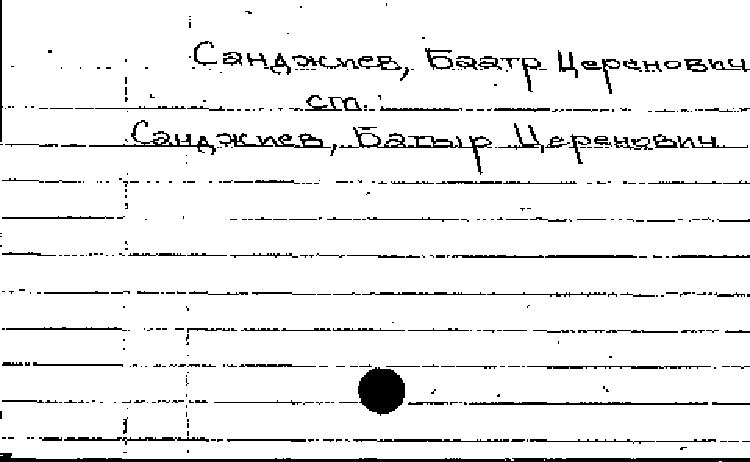 Санджиев, Баатр Церенович
см.
Санджиев, Батыр Церенович